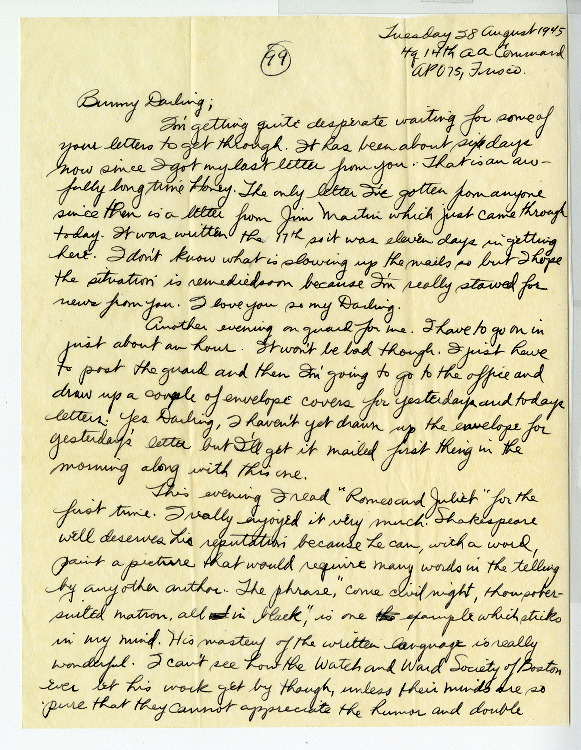 Tuesday 28 August 1945
Hq 14th AA Command
APO 75, Frisco.
99
Bunny Darling;
I'm getting quite desperate waiting for some of
your letters to get through. It has been about six days
now since I got my last letter from you. That is an aw-
fully long time Honey. The only letter I've gotten from anyone
since then is a letter from Jim Martin which just came through
today. It was written the 17th so it was eleven days in getting
here. I don't know what is slowing up the mails so but I hope
the situation is remedied soon because I'm really starved for
news from you. I love you so my Darling.
Another evening on guard for me. I have to go on in
just about an hour. It won't be bad though. I just have
to post the guard and then I'm going to go to the office and
draw up a couple of envelope covers for yesterdays and todays
letters. Yes Darling, I haven't yet drawn up the envelope for
yesterday's letter but I'll get it mailed first thing in the
morning along with this one.
This evening I read "Romeo and Juliet" for the
first time. I really enjoyed it very much. Shakespeare
well deserves his reputation because he can, with a word,
paint a picture that would require many words in the telling
by any other author. The phrase, "come civil night, thou sober-
suited matron, all in black", is one example which sticks
in my mind. His mastery of the written language is really
wonderful. I can't see how the Watch and Ward Society of Boston
ever let his work get by though, unless their minds are so
pure that they cannot appreciate the humor and double